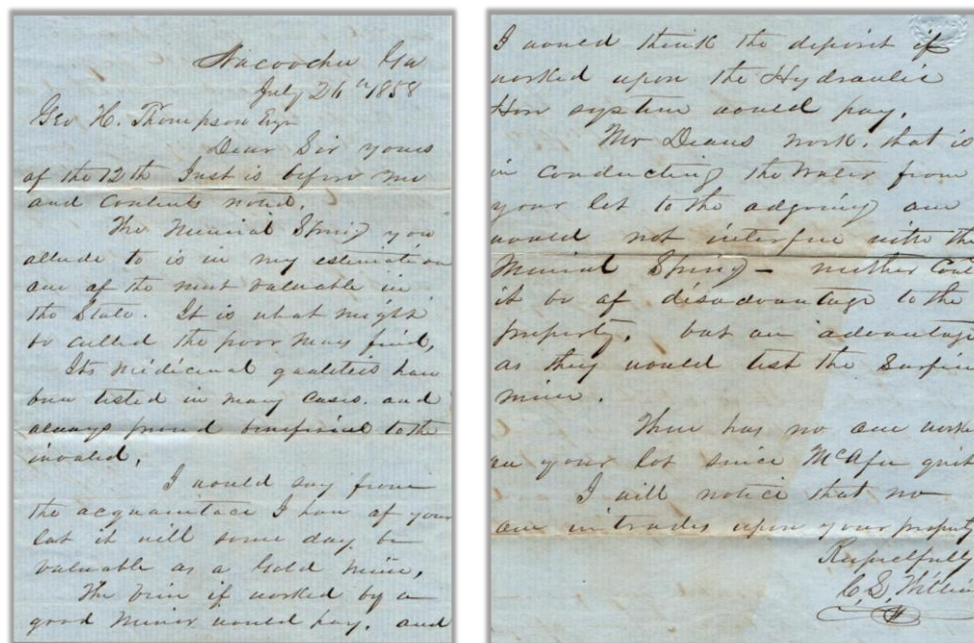 Nacoochee Ga
July 26th 1858
Geo H. Thompson Esqr
Dear Sir yours
of the 12th Inst is before me
and Contents noted.
The Minirial Spring you
allude to is in my estimation
one of the most valuable in
the State. It is what might
be called the poor mans find,
Its medicinal qualities have
been tested in many cases. and
always proved beneficial to the
invaled,
I would say from
the acquaintace I have of your
Lot it will some day be
valuable as a Gold Mine,
The vein if worked by a
good Minor would pay. and
I would think the deposit if
worked upon the Hydraulic
Hose system would pay.
Mr Deans work. that is
in Conducting the Water from
your lot to the adgoing one
would not interfere with the
Minirial Spring – neither Could
it be of disadvantage to the
property. but an advantage
as they would test the Surface
mine.
There has no one worked
on your lot since McAfee quit
I will notice that no
one intrudes upon your property
Respectfully
C. L. Williams